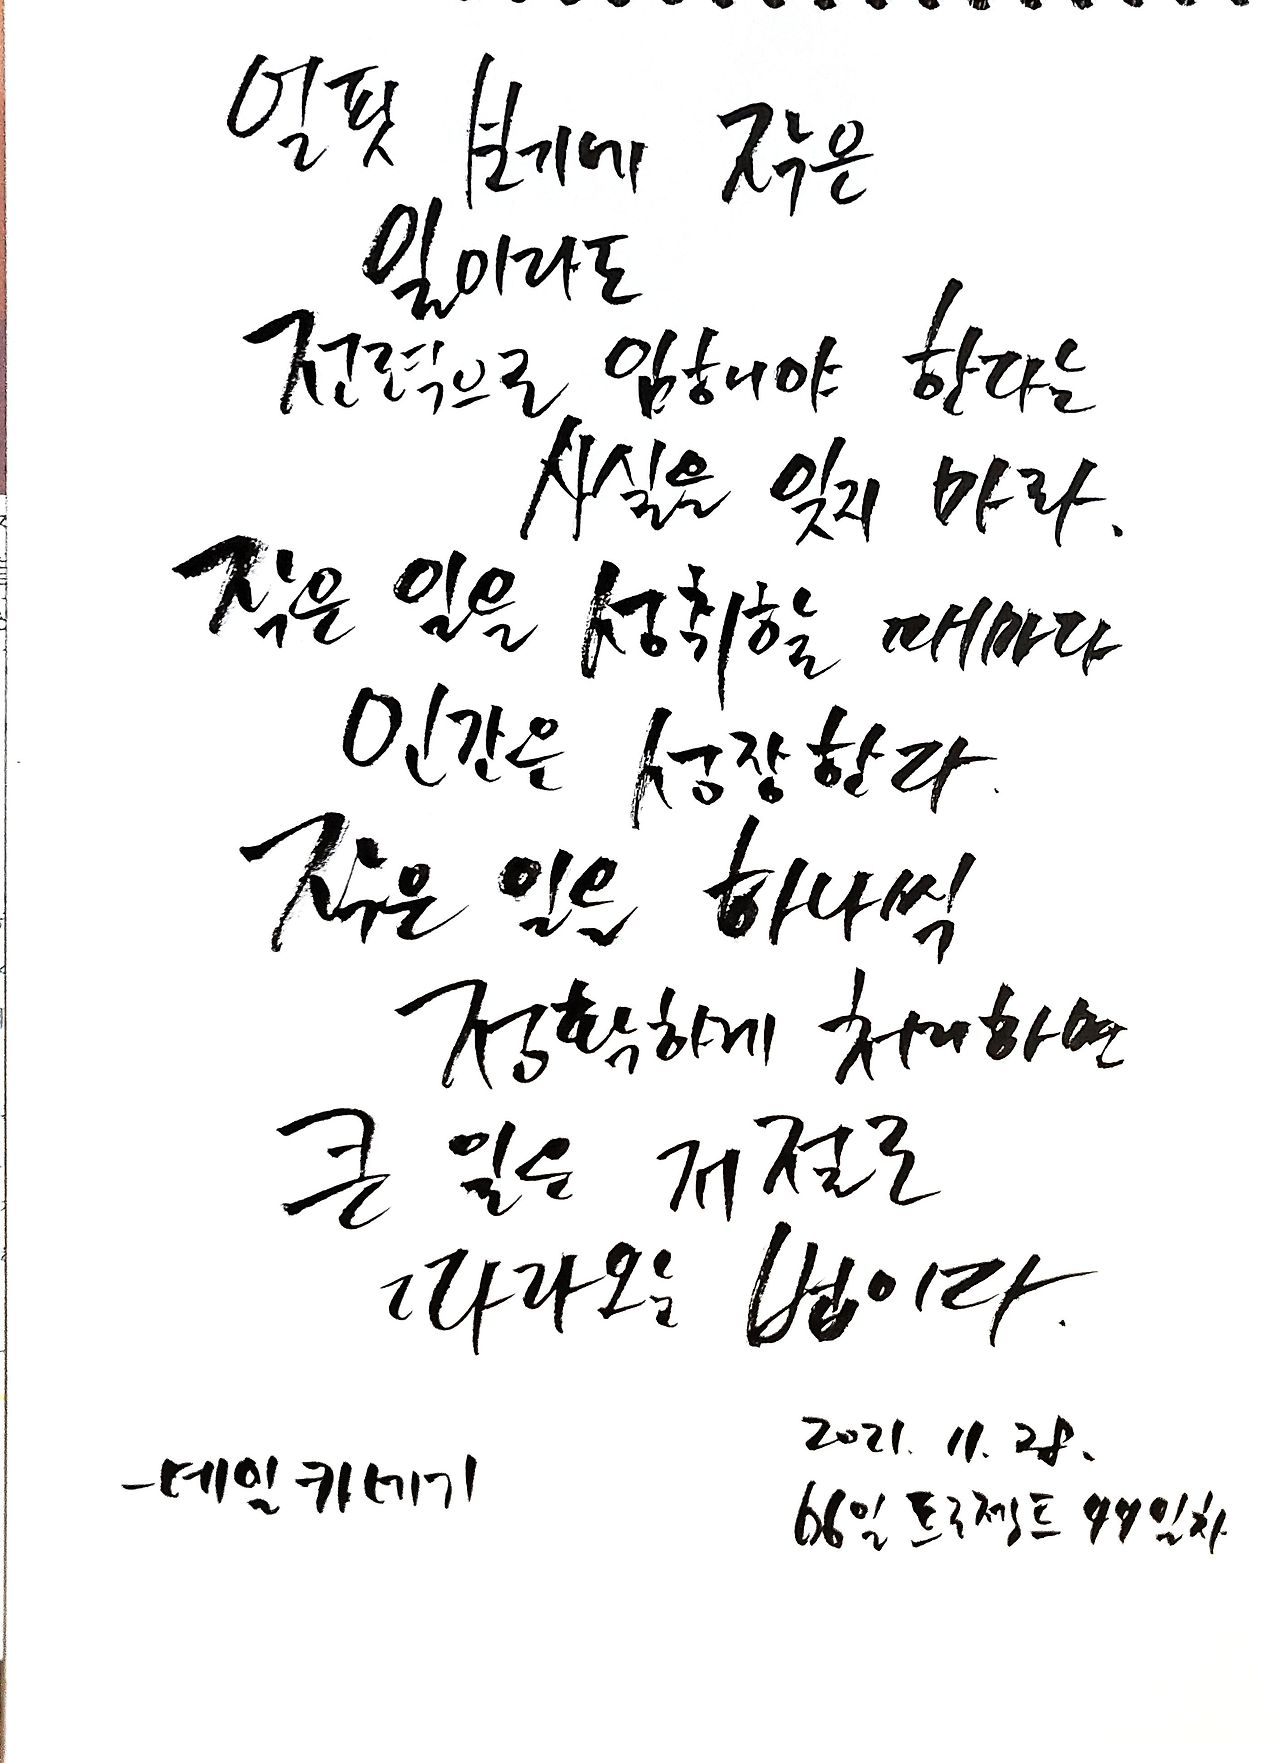 얼핏 보기에 작은
일이라도
전력으로 임해야 한다는
사실을 잊지 마라.
작은 일을 성취할 때마다
인간은 성장한다.
작은 일을 하나씩
정확하게 처리하면
큰 일은 저절로
따라오는 법이다.
-데일 카네기
2021. 11. 28.
66일 프로젝트 44일차